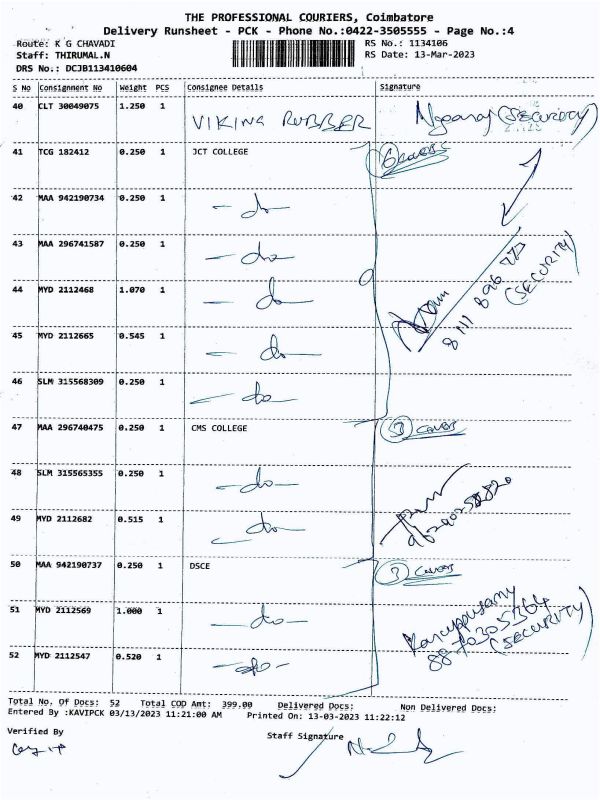 THE PROFESSIONAL COURIERS, Coimbatore
Delivery Runsheet - PCK - Phone No.:0422-3505555 - Page No.:4
Route: K G CHAVADI
RS No.: 1134106
Staff: THIRUMAL.N
RS Date: 13-Mar-2023
DRS No.: DCJB113410604
S No Consignment No Weight PCS Consignee Details Signature
40 CLT 30049075 1.250 1 VIKING RUBBER (SECURITY)
41 TCG 182412 0.250 1 JCT COLLEGE 6 covers
42 MAA 942190734 0.250 1 -do-
43 MAA 296741587 0.250 1 -do-
44 MYD 2112468 1.070 1 -do-
8111 896 777
(SECURITY)
45 MYD 2112665 0.545 1 -do-
46 SLM 315568309 0.250 1 -do-
47 MAA 296740475 0.250 1 CMS COLLEGE 3 covers
48 SLM 315565355 0.250 1 -do-
49 MYD 2112682 0.515 1 -do-
50 MAA 942190737 0.250 1 DSCE 3 covers
51 MYD 2112569 1.000 1 -do-
Karuppusamy
(SECURITY)
52 MYD 2112547 0.520 1 -do-
Total No. Of Docs: 52 Total COD Amt: 399.00 Delivered Docs: Non Delivered Docs:
Entered By :KAVIPCK 03/13/2023 11:21:00 AM Printed On: 13-03-2023 11:22:12
Verified By
Staff Signature